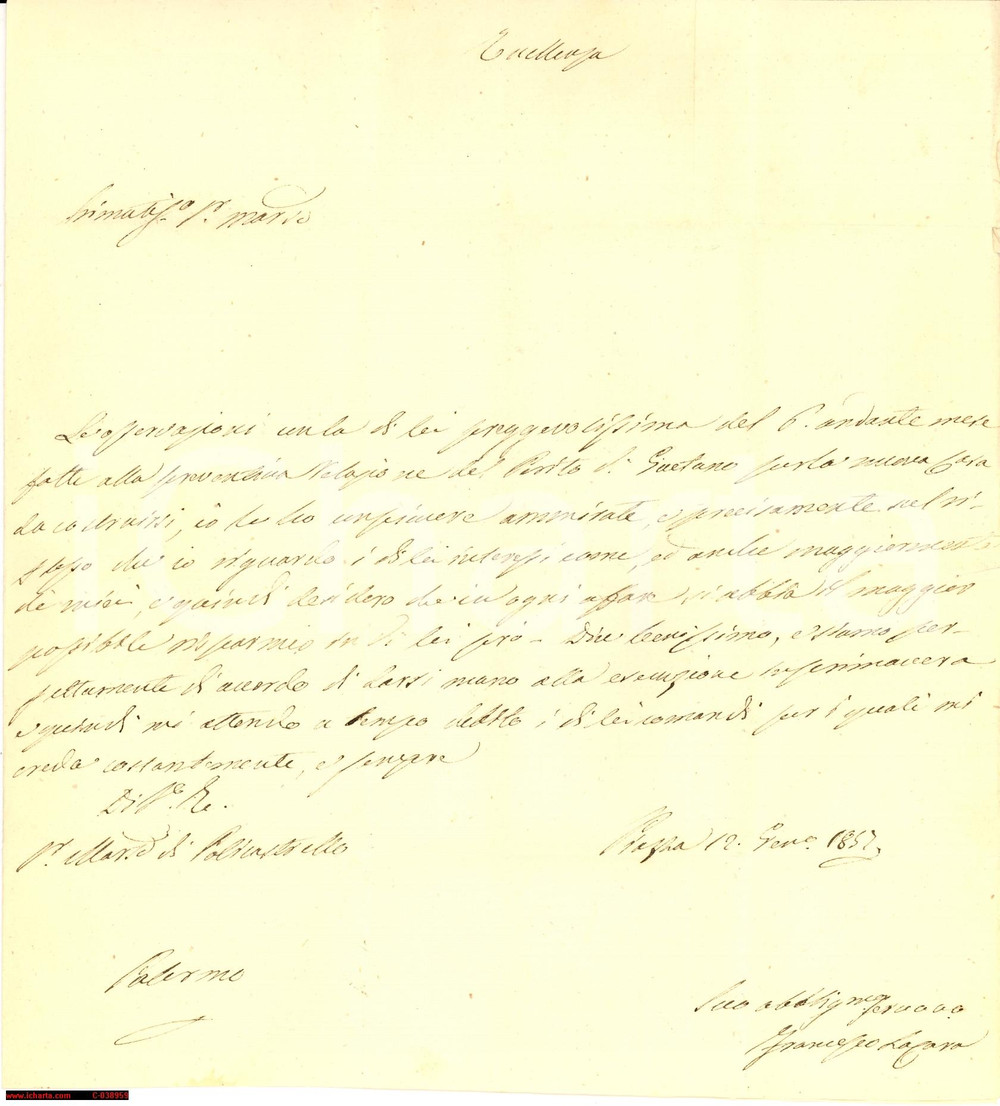 Eccellenza
Stimatis.o S.r March.e
Le osservazioni con la di lei preggevolissima del 6. andante mese
fatte alla preventiva relazione del Perito di Gaetano per la nuova Casa
da costruirsi, io le ho con piacere ammirate, e precisamente nel ri-
flesso che io riguardo i di lei interessi come, ed anche maggiormente
de' miei, e quindi desidero che in ogni affare si abbia il maggior
possibile risparmio in di lei prò - Dice benissimo, e siamo per-
fettamente di accordo di darsi mano alla esecuzione in primavera
e quindi mi attendo a tempo debito i di lei comandi per i quali mi
creda costantemente, e sempre
Di V.a E.
S.r March.e di Policastrello
Piazza 12. Gen.o 1857.
Palermo
Suo obblig.mo servo
Francesco
www.icharta.com C-038959